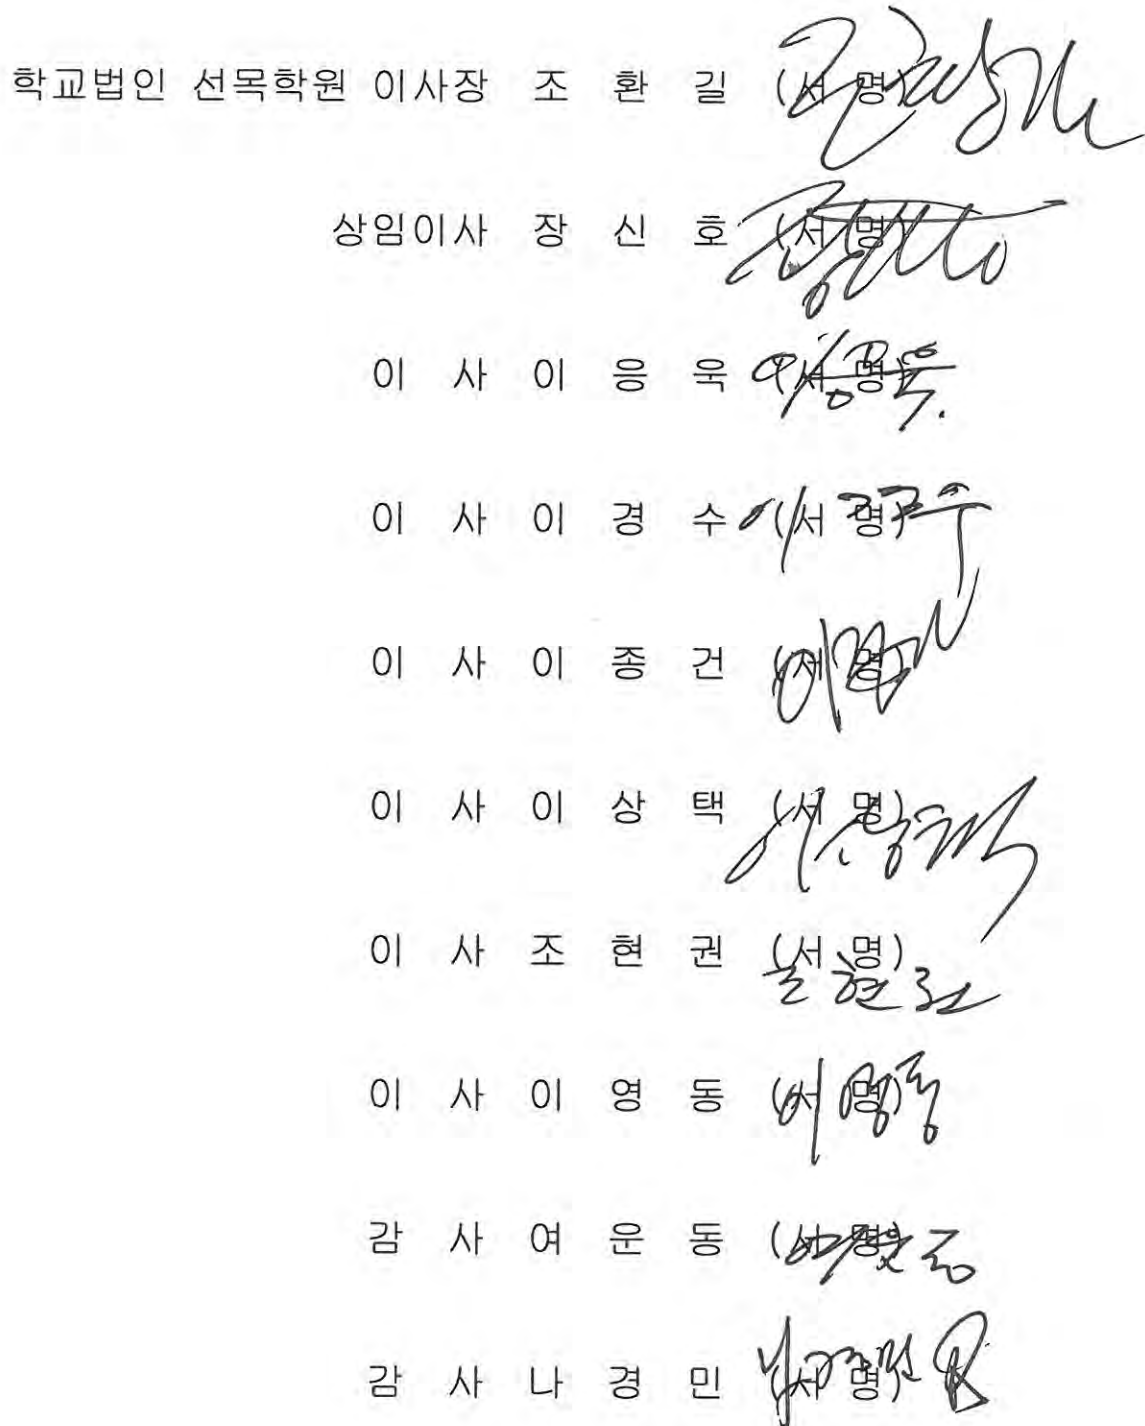 학교법인 선목학원 이사장 조 환 길 (서 명)
상임이사 장 신 호 (서 명)
이 사 이 응 욱 (서 명)
이 사 이 경 수 (서 명)
이 사 이 종 건 (서 명)
이 사 이 상 택 (서 명)
이 사 조 현 권 (서 명)
이 사 이 영 동 (서 명)
감 사 여 운 동 (서 명)
감 사 나 경 민 (서 명)